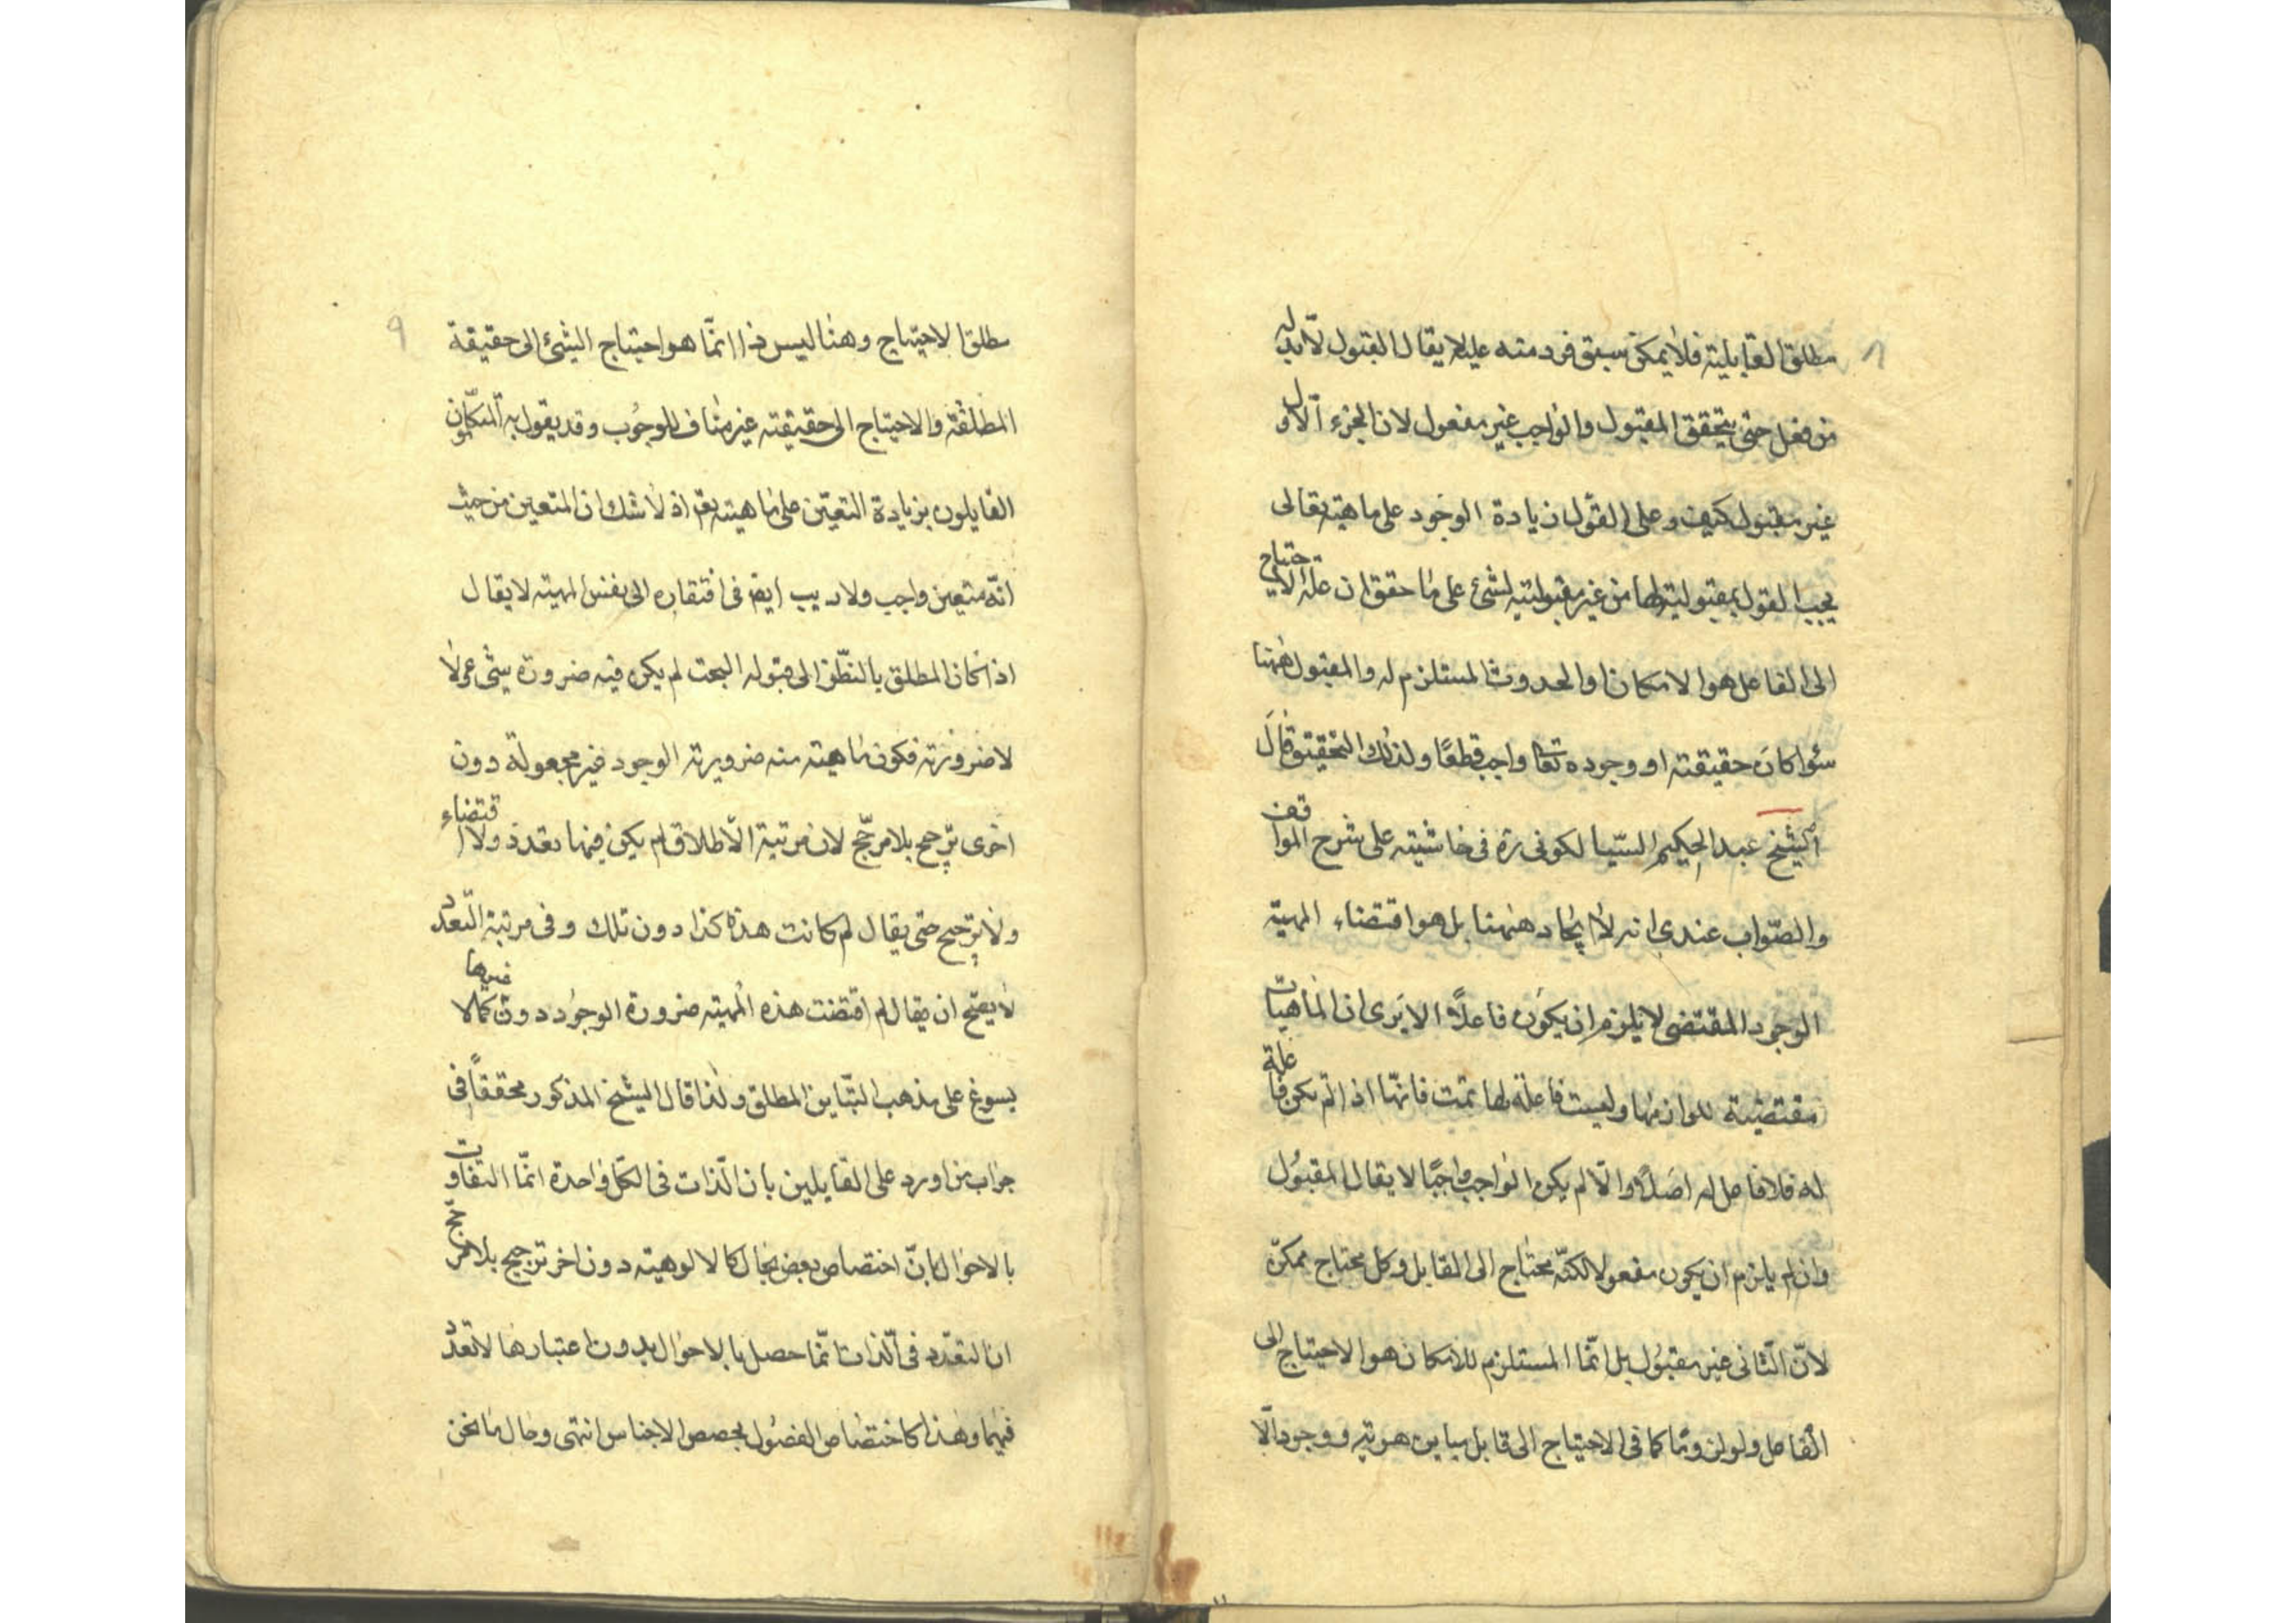 ٨
مطلق القابلية فلا يمكن سبق فرد منه عليه لا يقال القبول لا بد له
من فعل حتى يتحقق المقبول والواجب غير مفعول لان الجزء الاول
غير مقبول كيف وعلى القول زيادة الوجود على ماهيته تعالى
يجب القول بمقبوليته لها من غير مقبوليته لشئ على ما حقق ان علة الاحتياج
الى الفاعل هو الامكان او الحدوث المستلزم له والمقبول ههنا
سوا كان حقيقته او وجوده تعا واجب قطعًا ولذلك التحقيق قال
الشيخ عبد الحكيم السيالكوتى ره فى حاشيته على شرح المواقف
والصّواب عندى انه لا ايجاد ههنا بل هو اقتضاء المهية
الوجود المقتضى لا يلزم ان يكون فاعلاً الا يرى ان الماهيات
مقتضية للوازمها وليست فاعلة لها تمت فانّها اذا لم يكن فاعلة
له فلا فاعل له اصلاً والّا لم يكن الواجب واجبًا لا يقال المقبول
وان لم يلزم ان يكون مفعولا لكنّه محتاج الى القابل وكل محتاج ممكن
لانّ الثانى غير مقبول بل انّما المستلزم للامكان هو الاحتياج الى
الفاعل ولو لزوما كما فى الاحتياج الى قابل يباين هويته ووجود الا
٩
مطلق الاحتياج وهنا ليس ذا انّما هو احتياج الشئ الى حقيقة
المطلقة والاحتياج الى حقيقته غير مناف للوجوب وقد يقول به المتكلمون
القايلون بزيادة التعيّن على ماهيته تعم اذ لا شك ان المتعين من حيث
انّه متعين واجب ولا ريب ايضا فى افتقاره الى نفس المهية لا يقال
اذا كان المطلق بالنظر الى قبوله البحت لم يكن فيه ضرورة شئ ولا
لا ضرورته فكون ماهيته منه ضرورية الوجود غير مجعولة دون
اخرى ترجح بلا مرجّح لان مرتبة الاطلاق لم يكن فيها تعدد ولا اقتضاء
ولا ترجيح حتى يقال لم كانت هذه كذا دون تلك وفى مرتبة التعدد
لا يصحّ ان يقال لم اقتضت هذه المهية ضرورة الوجود دون غيرها كما لا
يسوغ على مذهب التباين المطلق ولذا قال الشيخ المذكور محققاً فى
جواب من اورد على القايلين بان الذات فى الكل واحدة انّما التفاوت
بالاحوال بانّ اختصاص بعض بحال كالالوهية دون اخر ترجيح بلا مرجّح
ان التعدد فى الذات انّما حصل بالاحوال بدون اعتبارها لا تعدد
فيها وهذا كاختصاص الفصول بحصص الاجناس انتهى وحال ما نحن